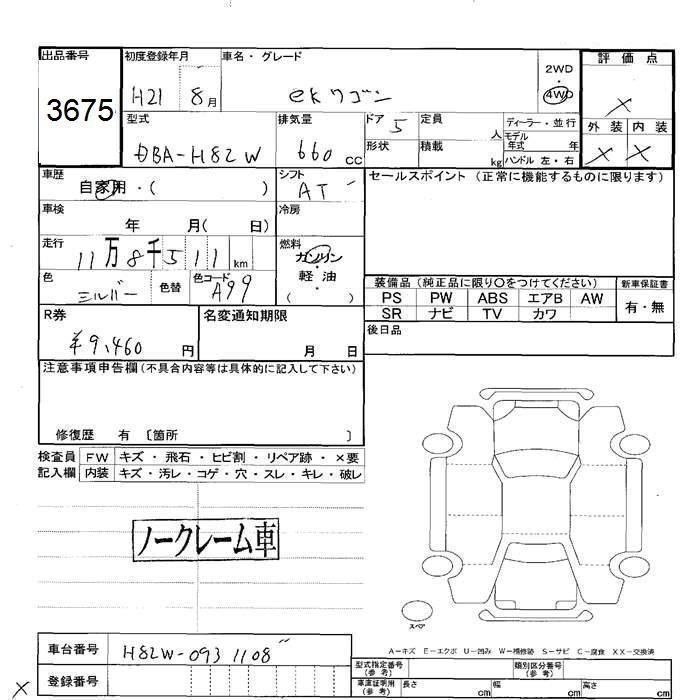 出品番号 初度登録年月 車名・グレード 評価点
3675 H21 8月 ekワゴン 2WD ・ 4WD ×
型式 排気量 ドア 5 定員 人 ディーラー・並行 外装 内装
DBA-H82W 660cc 形状 積載 kg モデル年式 年 ハンドル 左・右 × ×
車歴 自家用・( ) シフト AT セールスポイント(正常に機能するものに限ります)
車検 年 月( 日) 冷房
走行 11万8千511km 燃料 ガソリン・軽油 ( )
色 シルバー 色替 色コード A99 装備品(純正品に限り〇をつけてください) 新車保証書
PS PW ABS エアB AW 有・無
SR ナビ TV カワ
R券 ¥9,460円 名変通知期限 月 日 後日品
注意事項申告欄(不具合内容等は具体的に記入して下さい)
修復歴 有 〔箇所 〕
検査員 FW キズ・飛石・ヒビ割・リペア跡・×要
記入欄 内装 キズ・汚レ・コゲ・穴・スレ・キレ・破レ
ノークレーム車
スペア
A-キズ E-エクボ U-凹み W-補修跡 S-サビ C-腐食 XX-交換済
車台番号 H82W-0931108
型式指定番号(参考) 類別区分番号(参考)
× 登録番号 車庫証明用(参考) 長さ cm 幅 cm 高さ cm